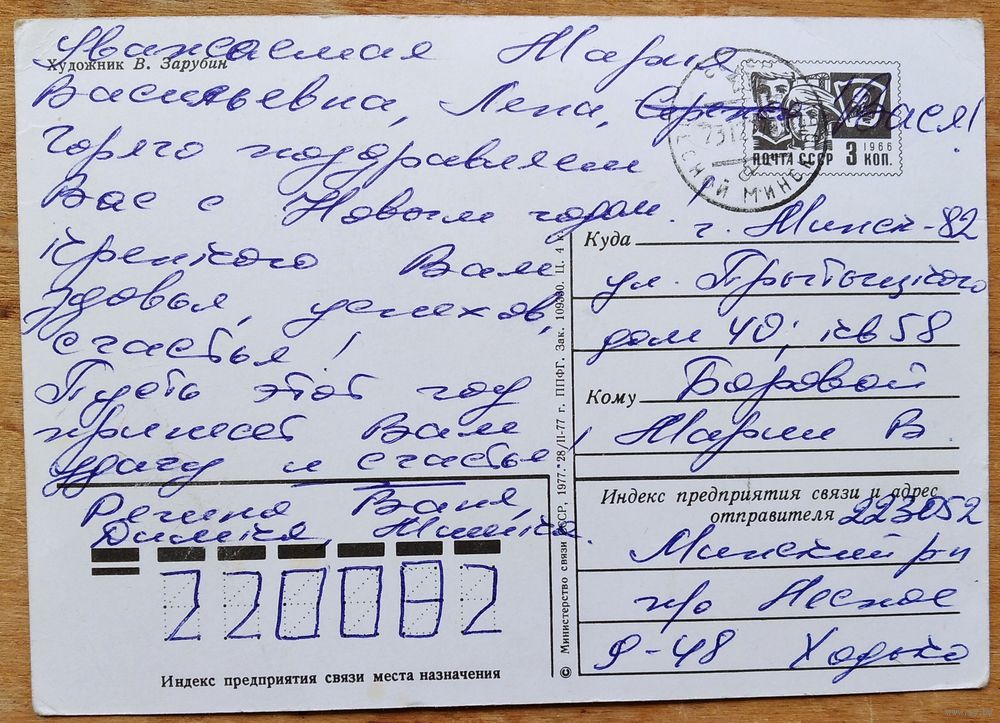 Уважаемая Мария
Художник В. Зарубин
Васильевна, Лена, Вася!
Горячо поздравляем
Вас с Новым годом!
Крепкого Вам
здовья, успехов,
счастья!
Пусть этот год
принесет Вам
удачу и счастье
Регина, Ваня,
Димка, Мишка.
220082
Индекс предприятия связи места назначения
© Министерство связи СССР, 1977. 28/II-77 г. ППФГ. Зак. 109390. Ц. 4 к.
МИНСК
1966
ПОЧТА СССР 3 КОП.
Куда г. Минск-82
ул. Притыцкого
дом 40; кв 58
Кому Боровой
Марии В.
Индекс предприятия связи и адрес
отправителя 223052
Минский р-н
п/о Лесное
9-48 Ходько